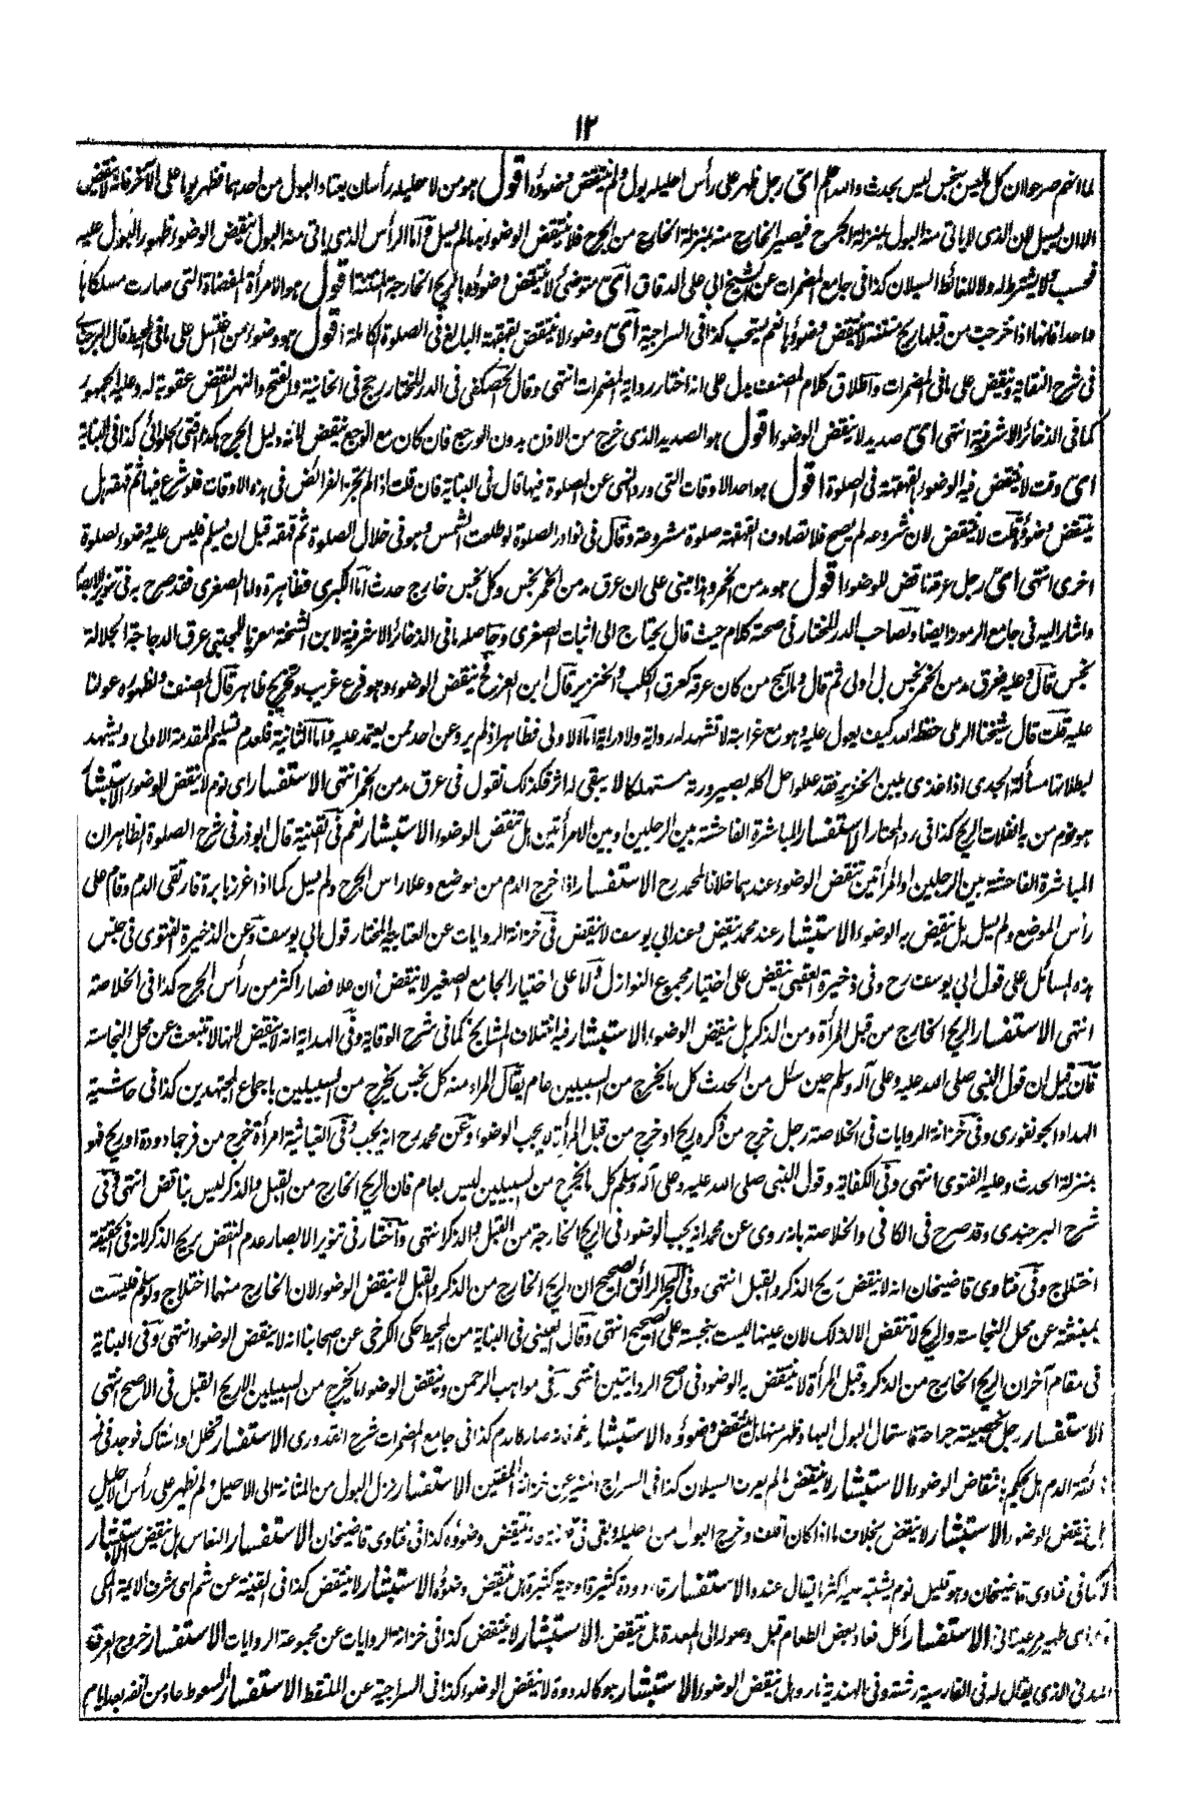 ١٢
لما انهم صرحوا ان كل ما ليس بنجس ليس بحدث والله اعلم اى رجل ظهر على رأس احليله بول ولم ينتقض وضوؤه اقول هو من لاحليله رأسان يعتاد البول من احدهما فظهر بول على الآخر فانه لا ينقض
الا ان يسيل لان الذى لا ياتى منه البول بمنزلة الجرح فيصير الخارج منه بمنزلة الخارج من الجرح فلا ينتقض الوضوء ما لم يسل واما الرأس الذى ياتى منه البول ينقض الوضوء ظهور البول عليه
فحسب ولا يشترط له ولا للغائط السيلان كذا فى جامع المضمرات عن الشيخ ابى على الدقاق اى متوضئ لا ينتقض وضوؤه بالريح الخارجة المنتنة اقول هو الامرأة المفضاة التى صارت مسلكاها
واحدا فانها اذا خرجت من قبلها ريح منتنة لا ينتقض وضوؤها نعم يستحب كذا فى السراجية اى وضوء لا ينتقض بقهقهة البالغ فى الصلوة الكاملة اقول هو وضوء من اغتسل على ما فى المحيط قال البرجندى
فى شرح النقاية وينقض على ما فى المضمرات واطلاق كلام المصنف يدل على انه اختار رواية المضمرات انتهى وقال الحصكفى فى الدر المختار رجح فى الخانية والفتح والنهر النقض عقوبة له وعليه الجمهور
كما فى الذخائر الاشرفية انتهى اى صديد لا ينقض الوضوء اقول هو الصديد الذى خرج من الاذن بدون الوجع فان كان مع الوجع ينقض لانه دليل الجرح هكذا افتى الحلوائى كذا فى البناية
اى وقت لا ينتقض فيه الوضوء بالقهقهة فى الصلوة اقول هو احد الاوقات التى ورد النهى عن الصلوة فيها قال فى البناية فان قلت اذا لم تجز الفرائض فى هذه الاوقات فلو شرع فيها ثم قهقه هل
ينتقض وضوؤه قلت لا ينتقض لان شروعه لم يصح فلا تصادف القهقهة صلوة مشروعة وقال فى نوادر الصلوة لو طلعت الشمس وهو فى خلال الصلوة ثم قهقه قبل ان يسلم فليس عليه وضوء لصلوة
اخرى انتهى اى رجل عرقه ناقض للوضوء اقول هو مدمن الخمر وهذا مبنى على ان عرق مدمن الخمر نجس وكل نجس خارج حدث اما الكبرى فظاهرة واما الصغرى فقد صرح به فى تنوير الابصار
واشار اليه فى جامع الرموز ايضا ولصاحب الدر المختار فى صحته كلام حيث قال يحتاج الى اثبات الصغرى وحاصله ما فى الذخائر الاشرفية لابن الشحنة معزيا للمجتبى عرق الدجاجة الجلالة
نجس قال وعليه فعرق مدمن الخمر نجس بل اولى ثم قال وما اسمج من كان عرقه كعرق الكلب والخنزير قال ابن العز فح ينقض الوضوء وهو فرع غريب وتخريج ظاهر قال المصنف ولظهوره عولنا
عليه قلت قال شيخنا الرملى حفظه الله كيف يعول عليه وهو مع غرابته لا تشهد له رواية ولا دراية اما الاولى فظاهر اذ لم يرو عن احد ممن يعتمد عليه واما الثانية فلعدم تسليم المقدمة الاولى ويشهد
لبطلانها مسألة الجدى اذا غذى بلبن الخنزير فقد عللوا حل اكله بصيرورته مستهلكا لا يبقى له اثر فكذلك نقول فى عرق مدمن الخمر انتهى الاستفسار اى نوم لا ينقض الوضوء الاستبشار
هو نوم من به انفلات الريح كذا فى رد المحتار الاستفسار المباشرة الفاحشة بين الرجلين او بين الامرأتين هل تنقض الوضوء الاستبشار نعم فى القنية قال ابو ذر فى شرح الصلوة الظاهر ان
المباشرة الفاحشة بين الرجلين او المرأتين تنقض الوضوء عندهما خلافا لمحمد رح الاستفسار اذا خرج الدم من موضع وعلا رأس الجرح ولم يسل كما اذا غرز بابرة فارتقى الدم وقام على
رأس الموضع ولم يسل هل ينقض به الوضوء الاستبشار عند محمد ينقض وعند ابى يوسف لا ينقض فى خزانة الروايات عن العتابية المختار قول ابى يوسف وعن الذخيرة الفتوى فى جنس
هذه المسائل على قول ابى يوسف رح وفى ذخيرة العقبى ينقض على اختيار مجموع النوازل واما على اختيار الجامع الصغير لا ينقض ان علا فصار اكثر من رأس الجرح كذا فى الخلاصة
انتهى الاستفسار الريح الخارج من قبل المرأة ومن الذكر هل ينقض الوضوء الاستبشار فيه اختلاف المشايخ كما فى شرح الوقاية وفى الهداية انه لا ينقض لانها لا تنبعث عن محل النجاسة
فان قيل ان قول النبى صلى الله عليه وعلى آله وسلم حين سئل من الحدث كل ما يخرج من السبيلين عام يقال المراد منه كل نجس يخرج من السبيلين باجماع المجتهدين كذا فى حاشية
الهداد الجونفورى وفى خزانة الروايات فى الخلاصة رجل خرج من ذكره ريح او خرج من قبل المرأة لا يجب الوضوء وعن محمد رح انه يجب وفى الغياثية امرأة تخرج من فرجها دودة او ريح فهو
بمنزلة الحدث وعليه الفتوى انتهى وفى الكفاية وقول النبى صلى الله عليه وعلى آله وسلم كل ما يخرج من السبيلين ليس بعام فان الريح الخارج من القبل والذكر ليس بناقض انتهى وفى
شرح البرجندى وقد صرح فى الكافى والخلاصة بانه روى عن محمد انه يجب الوضوء فى الريح الخارجة من القبل والذكر انتهى واختار فى تنوير الابصار عدم النقض بريح الذكر لانه فى الحقيقة
اختلاج وفى فتاوى قاضيخان انه لا ينقض ريح الذكر والقبل انتهى وفى البحر الرائق الصحيح ان الريح الخارج من الذكر والقبل لا ينقض الوضوء لان الخارج منهما اختلاج ولو سلم فليست
بمنبعثة عن محل النجاسة والريح لا تنقض الا لذلك لان عينها ليست بنجسة على الصحيح انتهى وقال العينى فى البناية من المحيط حكى الكرخى عن اصحابنا انه لا ينقض الوضوء انتهى وفى البناية
فى مقام آخر ان الريح الخارج من الذكر وقبل المرأة لا ينتقض به الوضوء فى اصح الروايتين انتهى وفى مواهب الرحمن وينقض الوضوء ما يخرج من السبيلين الا ريح القبل فى الاصح انتهى
الاستفسار رجل بخصيته جراحة فاستحال البول اليها وظهر منها هل ينتقض وضوؤه الاستبشار نعم فانه صار كالدم كذا فى جامع المضمرات شرح القدورى الاستفسار تخلل او استاك فوجد فى
رئحة الدم هل يحكم بانتقاض الوضوء الاستبشار لا ينتقض ما لم يعرف السيلان كذا فى السراج المنير عن خزانة المفتين الاستفسار نزل البول من المثانة الى الاحليل ولم يظهر على رأس الاحليل
هل ينقض الوضوء الاستبشار لا ينقض بخلاف ما اذا كان اقلف وخرج البول من احليله وبقى فى قلفته ينتقض وضوؤه كذا فى فتاوى قاضيخان الاستفسار النعاس هل ينقض الاستبشار
لا كما فى فتاوى قاضيخان وهو قليل نوم يشتبه عليه اكثر ما يقال عنده الاستفسار قاء دودة كثيرة او حية كثيرة هل ينتقض وضوؤه الاستبشار لا ينتقض كذا فى القنية عن شم اى شرف الائمة المكى
اى ظهير مرغينانى الاستفسار اكل فعاد بعض الطعام قبل وصوله الى المعدة هل ينتقض الاستبشار لا ينتقض كذا فى خزانة الروايات عن مجموعة الروايات الاستفسار خروج العرق
المدنى الذى يقال له فى الفارسية رشته وفى الهندية نارو هل ينقض الوضوء الاستبشار هو كالدودة لا ينقض الوضوء كذا فى السراجية عن الملتقط الاستفسار السعوط عاد من انفه بعد ايام